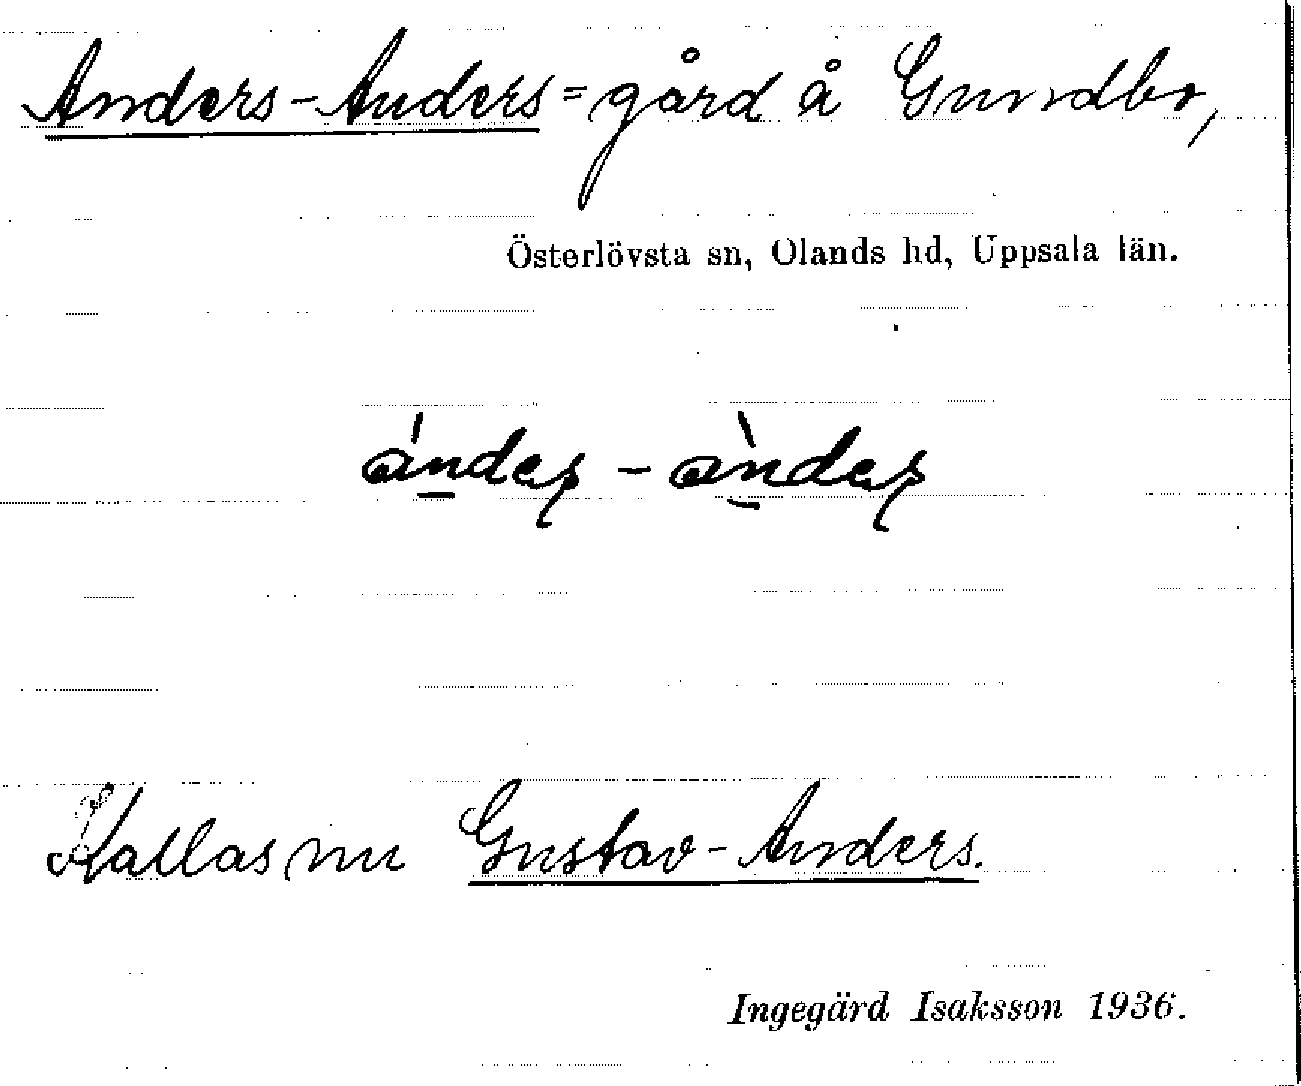 Anders-Anders=gård å Gundbo,
Österlövsta sn, Olands hd, Uppsala län.
Kallas nu Gustav-Anders.
Ingegärd Isaksson 1936.